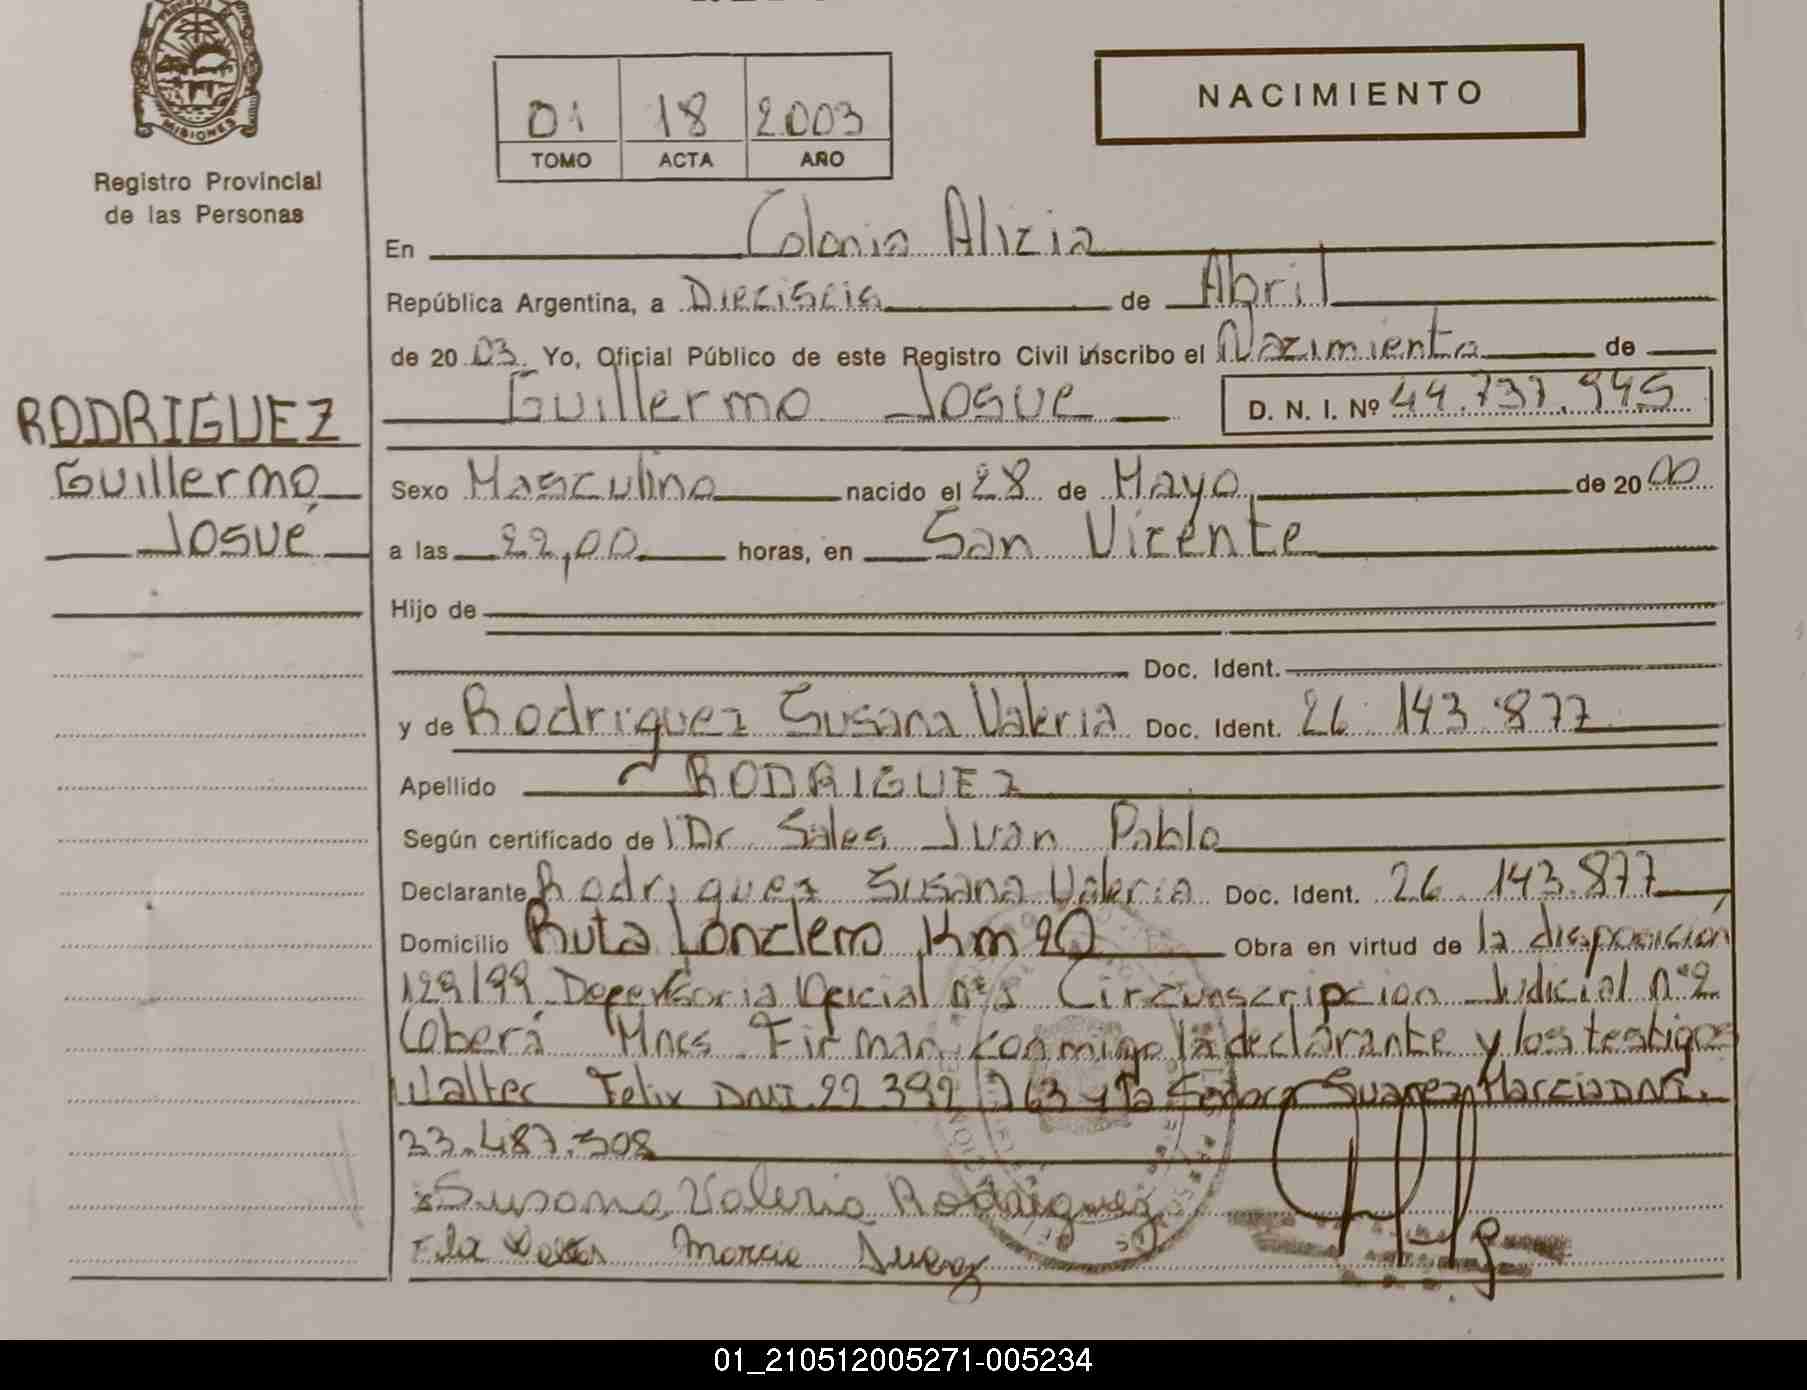 MISIONES
Registro Provincial
de las Personas
01 18 2003
TOMO ACTA AÑO
NACIMIENTO
En Colonia Alicia
República Argentina, a Dieciseis de Abril
de 20 03. Yo, Oficial Público de este Registro Civil inscribo el Nacimiento de
Guillermo Josue D. N. I. Nº 44.737.945
RODRIGUEZ
Guillermo
Josué
Sexo Masculino nacido el 28 de Mayo de 20 00
a las 22,00 horas, en San Vicente
Hijo de
Doc. Ident.
y de Rodriguez Susana Valeria Doc. Ident. 26.143.877
Apellido RODRIGUEZ
Según certificado de Dr. Sales Juan Pablo
Declarante Rodriguez Susana Valeria Doc. Ident. 26.143.877
Domicilio Ruta Km 20 Obra en virtud de la disposición
129/99 Defensoria Oficial Circunscripcion Judicial nº 2
Oberá Mnes. Firman conmigo la declarante y los testigos
Walter Felix DNI 22 392 y la Señora Suarez Marcia DNI.
33.487.508
Susana Valeria Rodriguez
Marcia Suarez
01_210512005271-005234